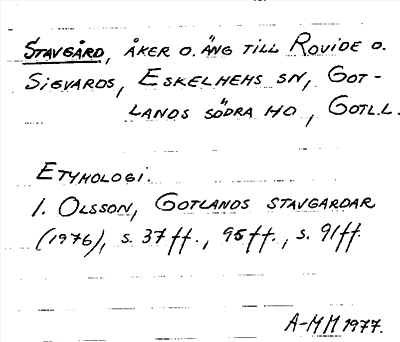 STAVGÅRD, ÅKER O. ÄNG TILL ROVIDE O.
SIGVARDS, ESKELHEMS SN, GOT-
LANDS SÖDRA HD, GOTL.L.
ETYMOLOGI.
I. OLSSON, GOTLANDS STAVGARDAR
(1976), s. 37 ff., 95 ff., s. 91 ff.
A-MM 1977.